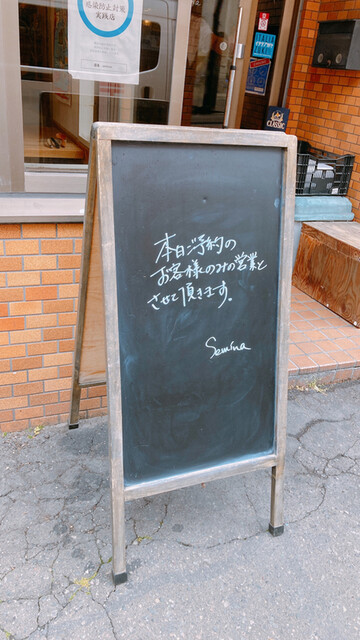 感染防止対策
実践店
CLASSIC
本日ご予約の
お客様のみの営業と
させて頂きます。